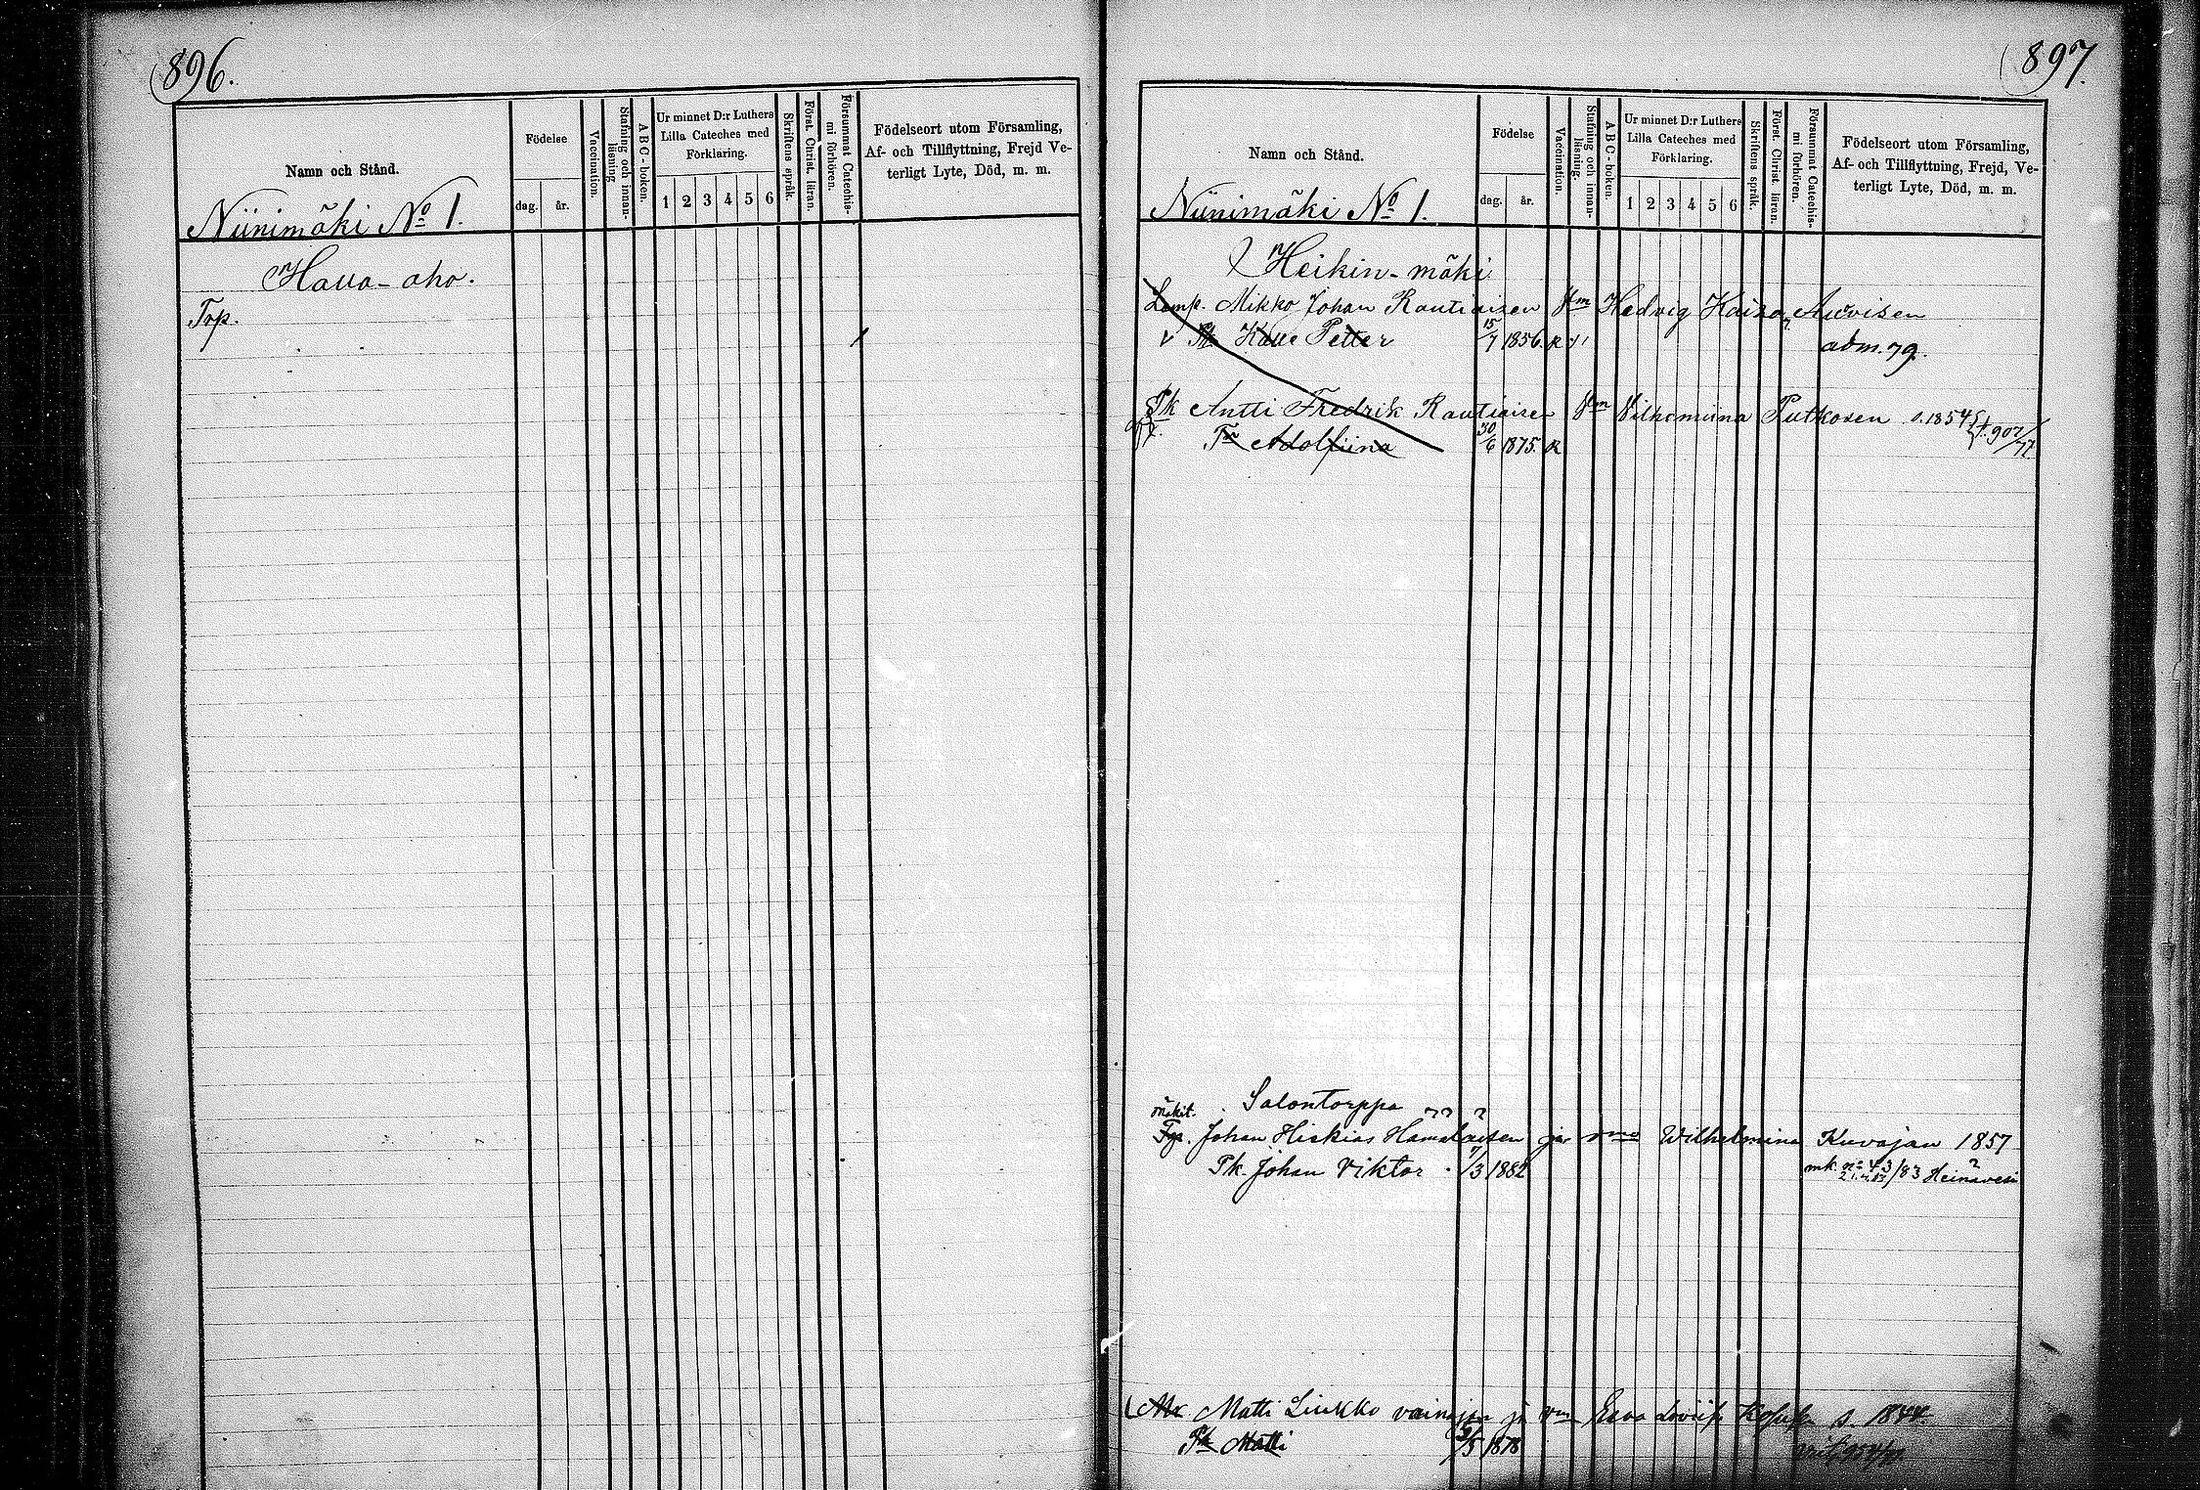 896.
Namn och Stånd.
Födelse
dag.
år.
Vaccination.
Stafning och innan-
läsning
ABC-boken.
Ur minnet D:r Luthers
Lilla Cateches med
Förklaring.
1 2 3 4 5 6
Skriftens språk.
Först. Christ. läran.
Försummat Catechis-
mi förhören.
Födelseort utom Församling,
Af- och Tillflyttning, Frejd Ve-
terligt Lyte, Död, m. m.
Niinimäki No 1.
Haua-aho.
Trp.
897.
Namn och Stånd.
Födelse
dag.
år.
Vaccination.
Stafning och innan-
läsning.
ABC-boken.
Ur minnet D:r Luthers
Lilla Cateches med
Förklaring.
1 2 3 4 5 6
Skriftens språk.
Först. Christ. läran.
Försummat Catechis-
mi förhören.
Födelseort utom Församling,
Af- och Tillflyttning, Frejd, Ve-
terligt Lyte, Död, m. m.
Niinimäki No 1.
Heikin-mäki
Lamp. Mikko Johan Rautiaisen Vm Hedvig Kaisa Auvisen
Pk Kalle Petter 15/7 1856. R adm. 79.
Pk Antti Fredrik Rautiaisen Vm Vilhemiina Putkosen s. 1854 907/77
Tr Adolfiina 30/6 1875. R
Salontorppa
Johan Hiskias Hämäläisen ja vmo Wilhelmina Kuvajan 1857
Pk. Johan Viktor 7/3 1882 mk. no 43/83 Heinävesi
Matti Liukko vainajan ja vm Eeva Loviisa s. 1844
Pk Matti /5 1878